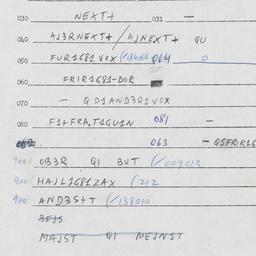 030 NEXT+ 031 —
040 AJ3RNEXT+ / AJNEXT+ QU
050 FUR1G81 VOX 064 0
060 FRIR1G81-DOR
070 - QD1AND3R1VOX
080 F1+FRA.T1GU1N 081 —
063 - Q5FRIR1G
OB3R QI BVT (/009013
HAJL1G81ZAX (212
AND3S+T (/138010
MAJST QI MEJNST